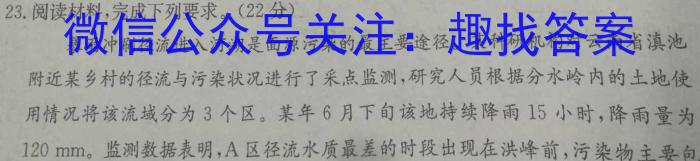 23.阅读材料,完成下列要求。(22分)
微信公众号关注:趣找答案
冲刷 径流进入 是面源污染的最主要途径 省滇池
附近某乡村的径流与污染状况进行了采点监测,研究人员根据分水岭内的土地使
用情况将该流域分为3个区。某年6月下旬该地持续降雨15小时,降雨量为
120 mm。监测数据表明,A区径流水质最差的时段出现在洪峰前,污染物主要